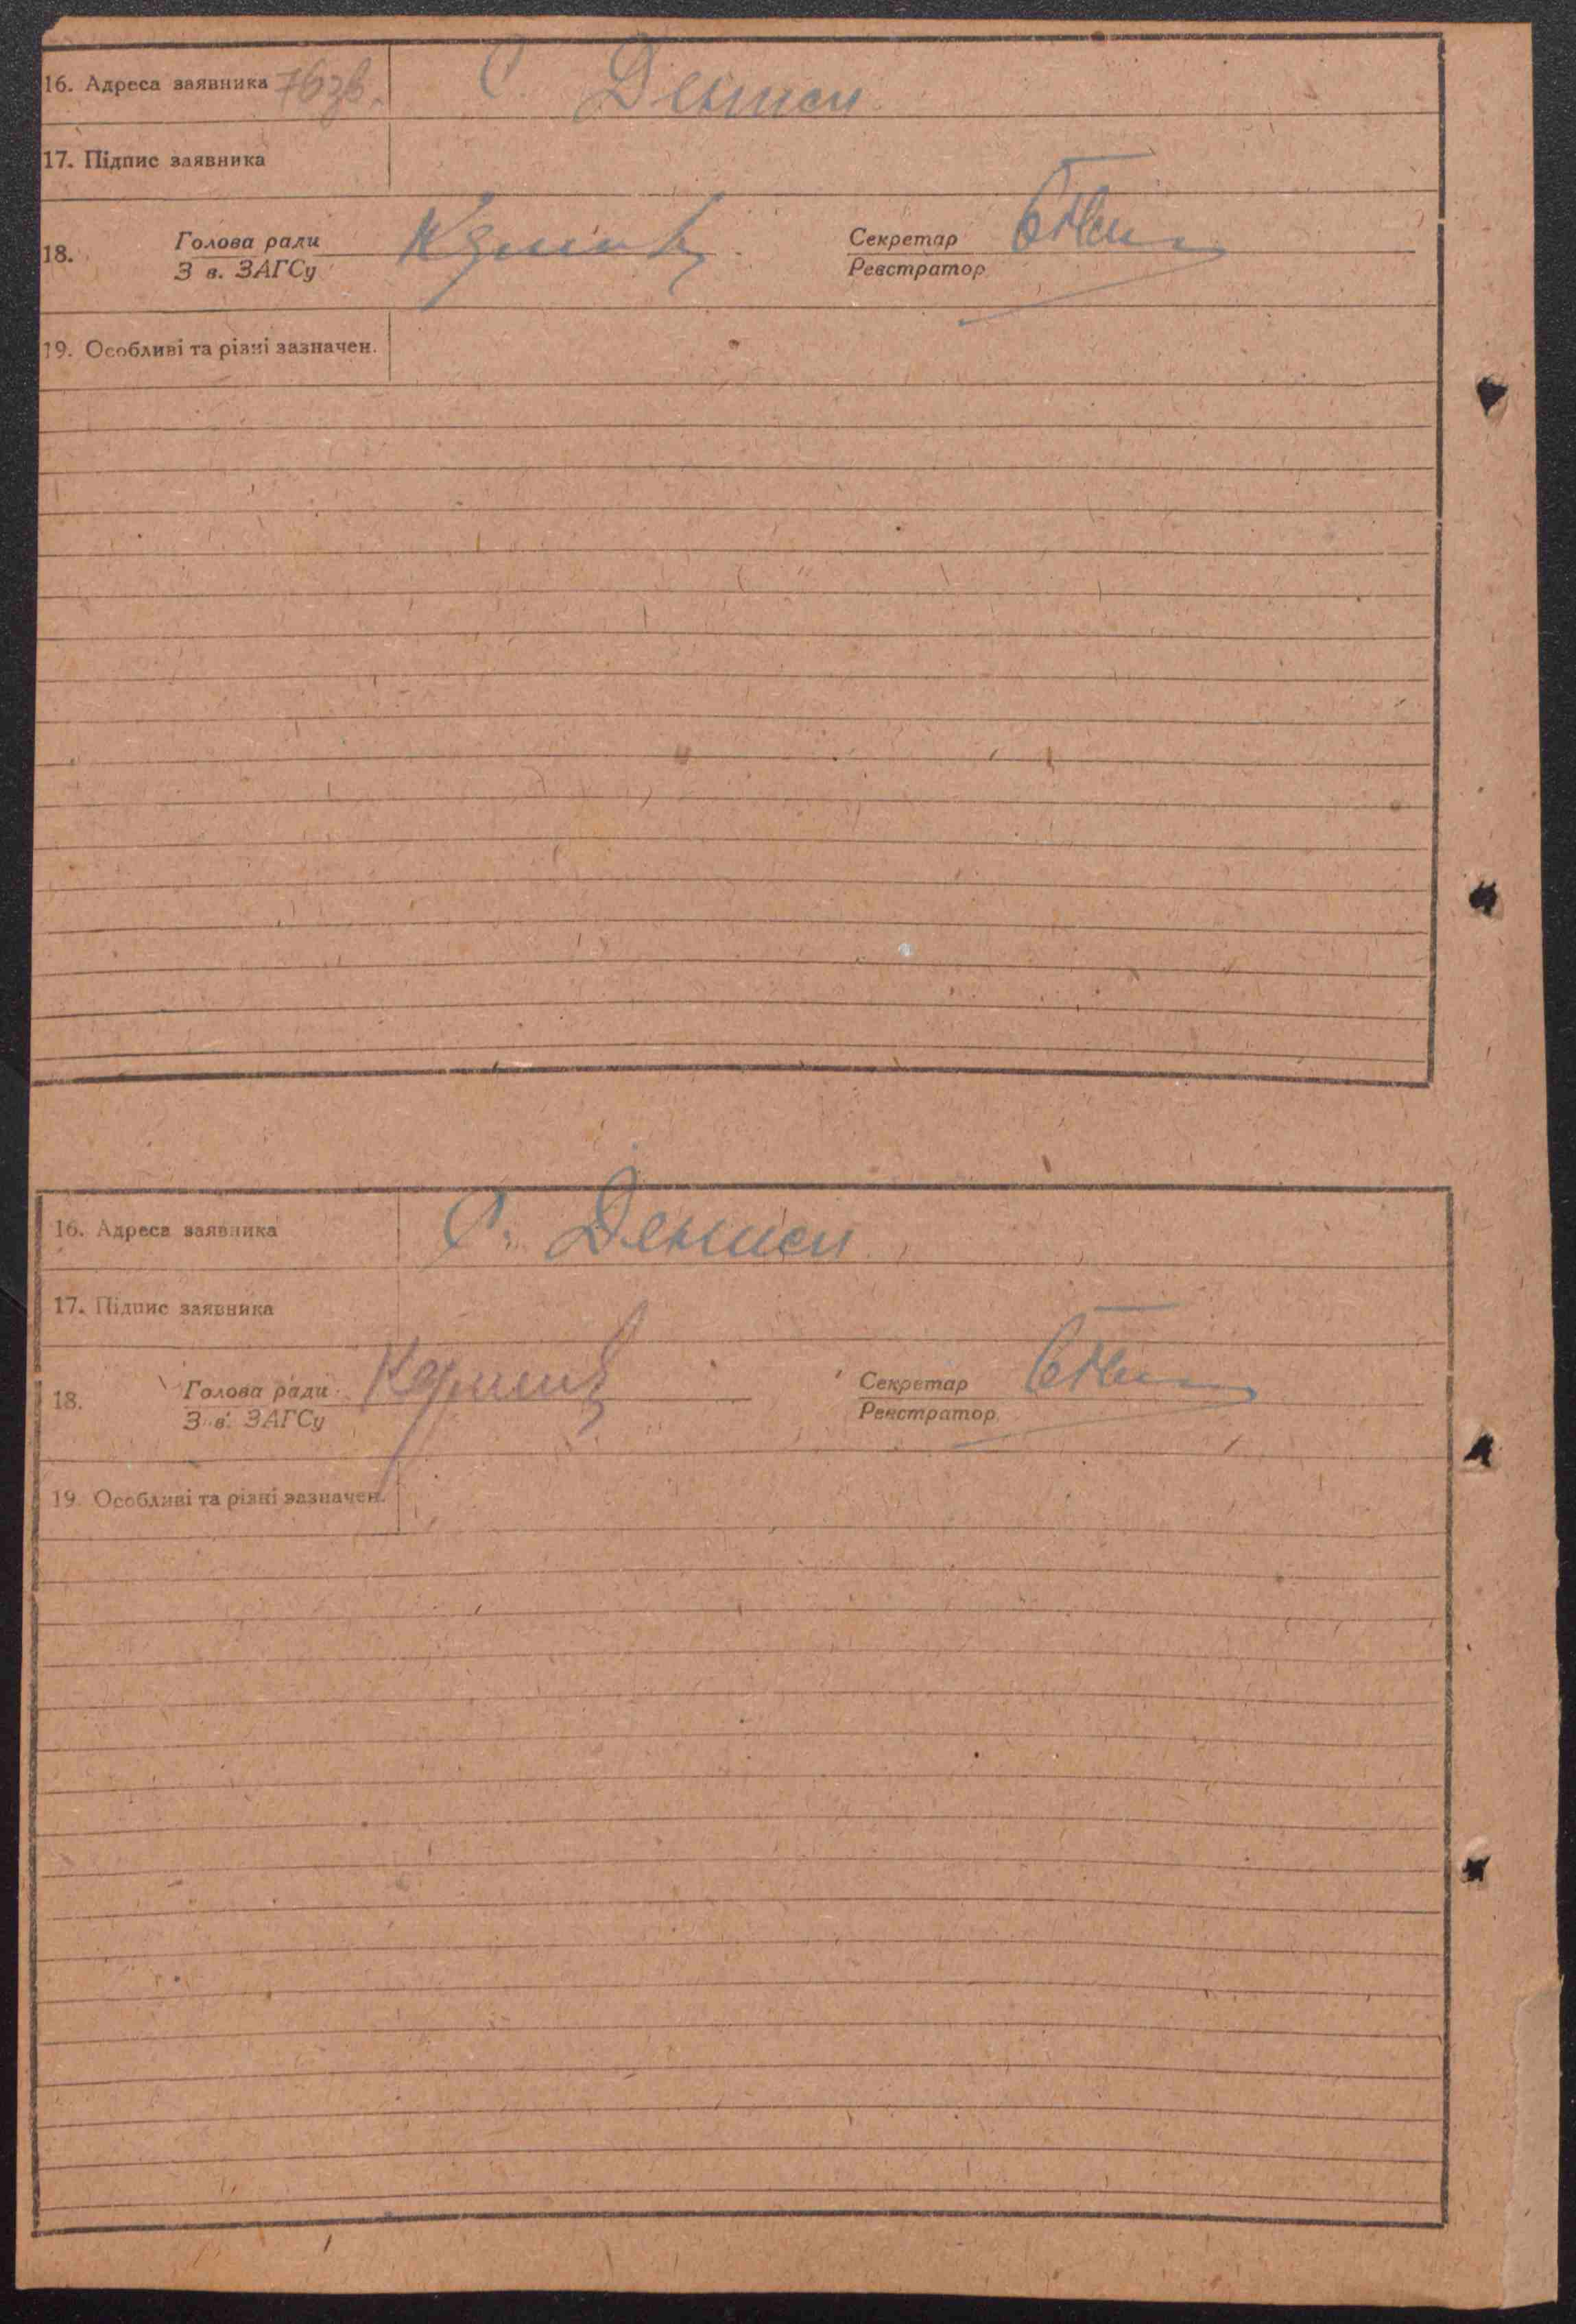 16. Адреса заявника 763в. С. Дениси
17. Підпис заявника
18. Голова ради Секретар
З в. ЗАГСу Реєстратор
19. Особливі та різні зазначен.
16. Адреса заявника С. Дениси
17. Підпис заявника
18. Голова ради Секретар
З в. ЗАГСу Реєстратор
19. Особливі та різні зазначен.